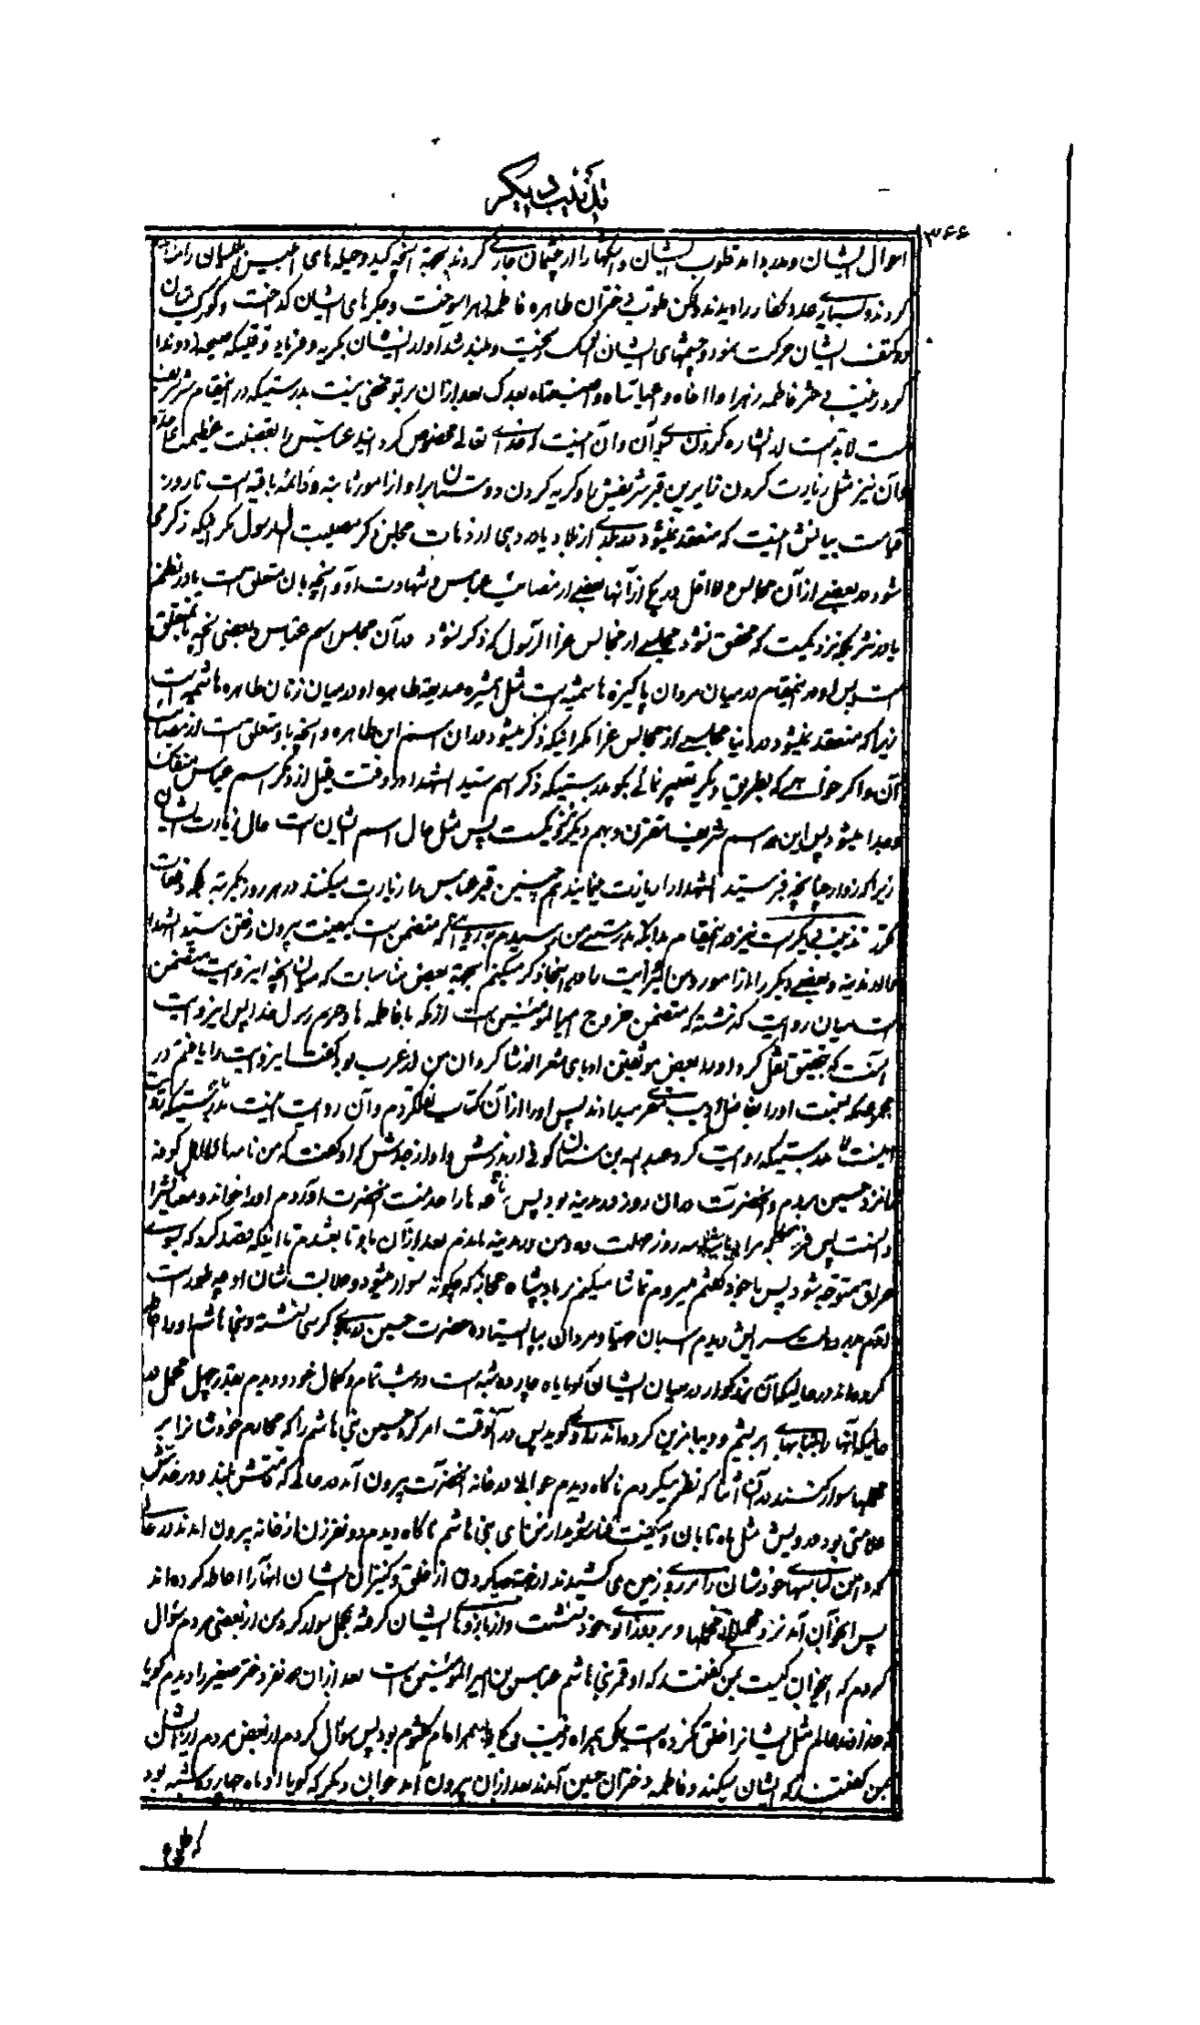 تذنیب دیگر
۳۶۶
احوال ایشان و قلوب ایشان و اشکها را از چشمان جاری کردند بجهة آنچه کید و حیله های
کردند و بسیاری عدد کفار را دیدند ولکن قلوب دختران طاهره فاطمه زهرا سوخت و جگرهای ایشان گداخت و
و کتف ایشان حرکت نمود و چشمهای ایشان اشک ریخت و بلند شد آواز ایشان بگریه و فریاد وقتیکه صیحه زد و ندا
کرد زینب دختر فاطمه زهرا وا اخاه وا عباساه وا ضیعتاه بعدک بعد ازان بر تو مخفی نیست بدرستیکه در اینمقام
است لابد است از اشاره کردن بسوی آن و آن اینست که خدای تعالی مخصوص گردانید عباس را بفضیلت عظیمه
و آن نیز مثل زیارت کردن زایرین قبر شریفش را و گریه کردن دوستان براو از امور ثابته و دائمه باقیه است تا روز
قیامت بیانش اینست که منعقد نمیشود در بلدی از بلاد یا در دهی از دهات مجلس ذکر مصیبت آل رسول مگر اینکه ذکر
شود در بعضی از آن مجالس لا اقل در یکی از آنها بعضی از مصائب عباس و شهادت او و آنچه بان متعلق است یا در نظم
یا در نثر بلکه نزدیکست که محقق نشود مجلسی از مجالس عزا آل رسول که ذکر نشود در آن مجلس اسم عباس و بعضی آنچه باو متعلق
است پس او در اینمقام در میان مردان پاکیزه هاشمیه است مثل همشیره صدیقه طاهره او در میان زنان طاهره هاشمیه است
زیرا که منعقد نمیشود در دنیا مجلسی از مجالس عزا مگر اینکه ذکر میشود دران اسم این طاهره و آنچه باو متعلق است از مصائب
آن و اگر خواهی که بطریق دیگر تعبیر نمائی بگو بدرستیکه ذکر اسم سید الشهدا در وقت قبل از ذکر اسم عباس منفک
و جدا نمیشود پس این دو اسم شریف مقترن و بهم دیگر نزدیکست پس مثل حال اسم ایشان است حال زیارت ایشان
زیرا که زوار چنانچه قبر سید الشهدا را زیارت مینمایند همچنین قبر عباس را زیارت میکنند در هر روز یکمرتبه بلکه دفعات
تذنیب دیگر است نیز در اینمقام بدانکه بدرستی من رسیدم بروایتی که متضمن است کیفیت بیرون رفتن سید الشهدا
را از مدینه و بعضی دیگر را از امور و من این روایت را در اینجا ذکر میکنم بجهة بعض مناسبات که میان آنچه این روایت متضمن
است میان روایت گذشته که متضمن خروج امیر المومنین است از مکه با فاطمه ها و حرم رسول خدا پس این روایت
آنست که بتحقیق نقل کرد او را بعض موثقین ادبای شعرا از شاگردان من از عرب و او گفت این روایت را یافتم در
مجموعه که نسبت او را بفاضل ادیب مقری میدادند پس او را از آن کتاب نقل کردم و آن روایت اینست
بدرستیکه روایت کرد عبد الله بن سنان کوفی از پدرش و او از جدش که او گفت که من نامه اهالی کوفه
را نزد حسین بردم و آنحضرت دران روز در مدینه بود پس نامه ها را خدمت آنحضرت آوردم او را خواند و معنایش را
دانست پس فرمود مرا سه روز مهلت ده و من در مدینه ماندم بعد ازان باو تابع شدم تا اینکه قصد کرد که بسوی
عراق متوجه شود پس با خود گفتم میروم تماشا میکنم بر پادشاه حجاز که چگونه سوار میشود و جلالت شان او چه طور است
آمدم بدر دولت سرایش دیدم اسبان مهیا و مردان بپا ایستاده حضرت حسین در بالای کرسی نشسته و بنی هاشم او را احاطه
کرده اند در حالیکه آن بزرگوار در میان ایشان گویا ماه چارده شبه است در شب تمام و کمال خود و دیدم بقدر چهل محمل در
حالیکه آنها را بلباسهای ابریشم و دیبا مزین کرده اند راوی گوید پس در آنوقت امر کرد حسین بنی هاشم را که محارم خودشانرا بر
محملها سوار کنند در آن اثنا که نظر میکردم ناگاه دیدم جوانی از در خانه آنحضرت بیرون آمد در حالی که قامتش بلند و در خدش
علامتی بود و رویش مثل ماه تابان و میگفت کنار شوید از من ای بنی هاشم ناگاه دیدم دو نفر زن از خانه بیرون آمدند در حالی
که دامن لباسهای خودشان را بر روی زمین می کشیدند از جهة حیا کردن از خلق و کنیزان ایشان آنها را احاطه کرده اند
پس آنجوان آمد نزد محملی از محملها و بر دو زانوی خود نشست و از بازوهای ایشان گرفته بمحمل سوار کرد من از بعضی مردم سؤال
کردم که اینجوان کیست بمن گفتند که او قمر بنی هاشم عباس بن امیر المؤمنین است بعد ازان دو نفر دختر صغیر را دیدم گویا
که خداوند عالم مثل ایشانرا خلق نکرده است یکی همراه زینب و یکی همراه ام کلثوم بود پس سؤال کردم از بعض مردم از ایشان
بمن گفتند که ایشان سکینه و فاطمه دختران حسین آمدند بعد ازان بیرون آمد جوان دیگر که گویا او ماه چارده شبه بود
که طره